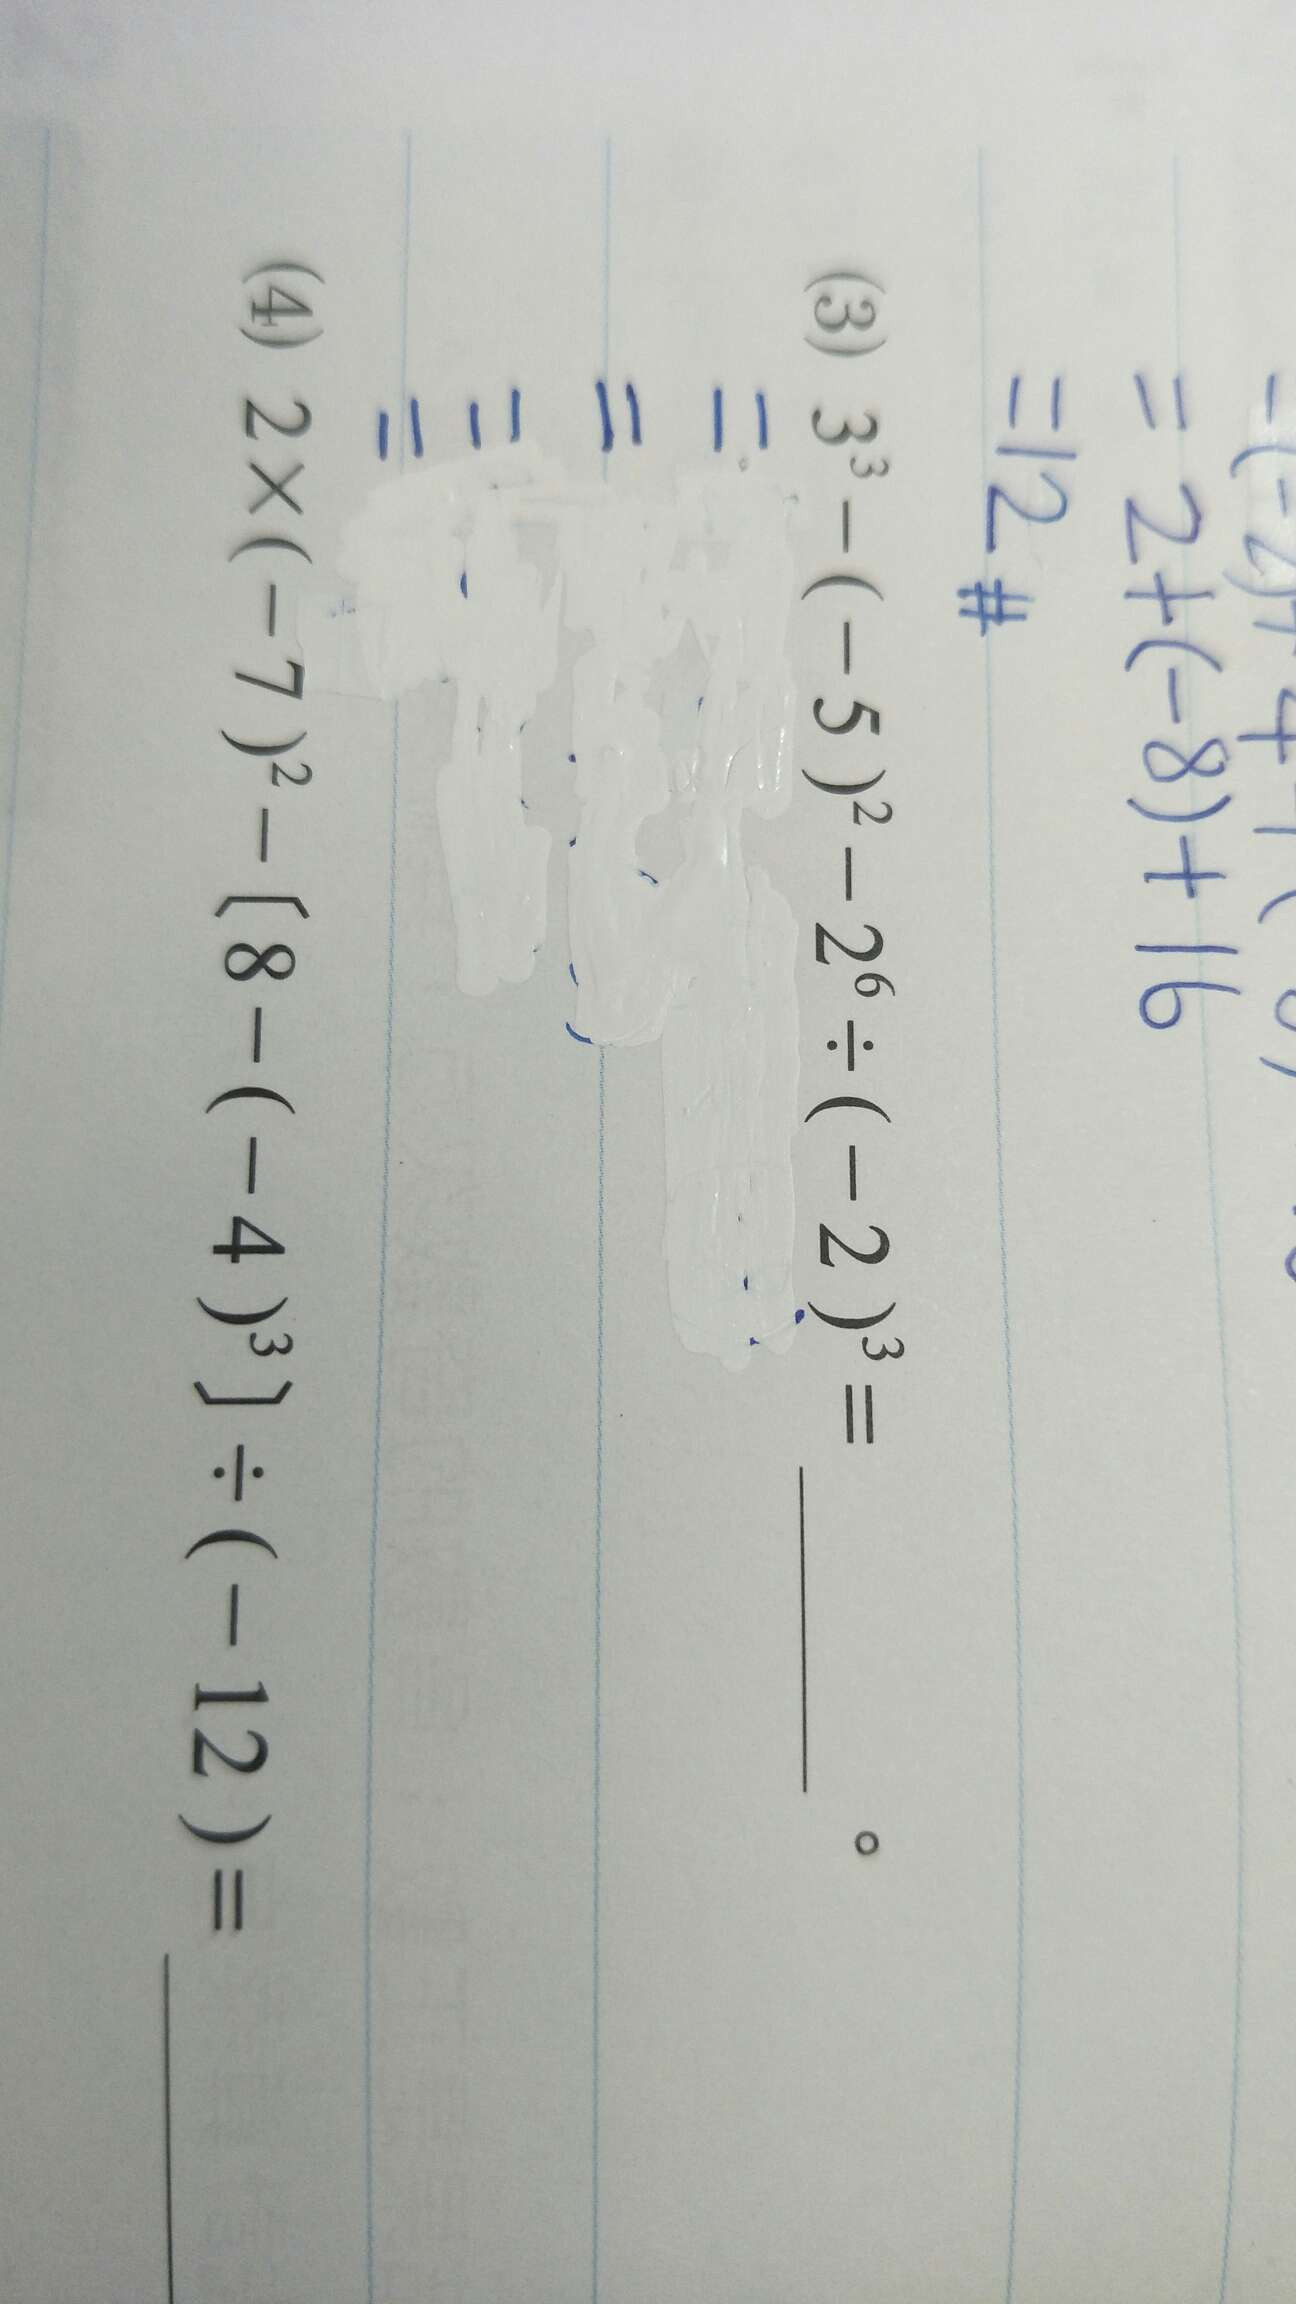 = 2+(-8)+16
=12#
(3) 3³-(-5)²-2⁶÷(-2)³=______。
=
=
=
=
(4) 2×(-7)²-〔8-(-4)³〕÷(-12)=______